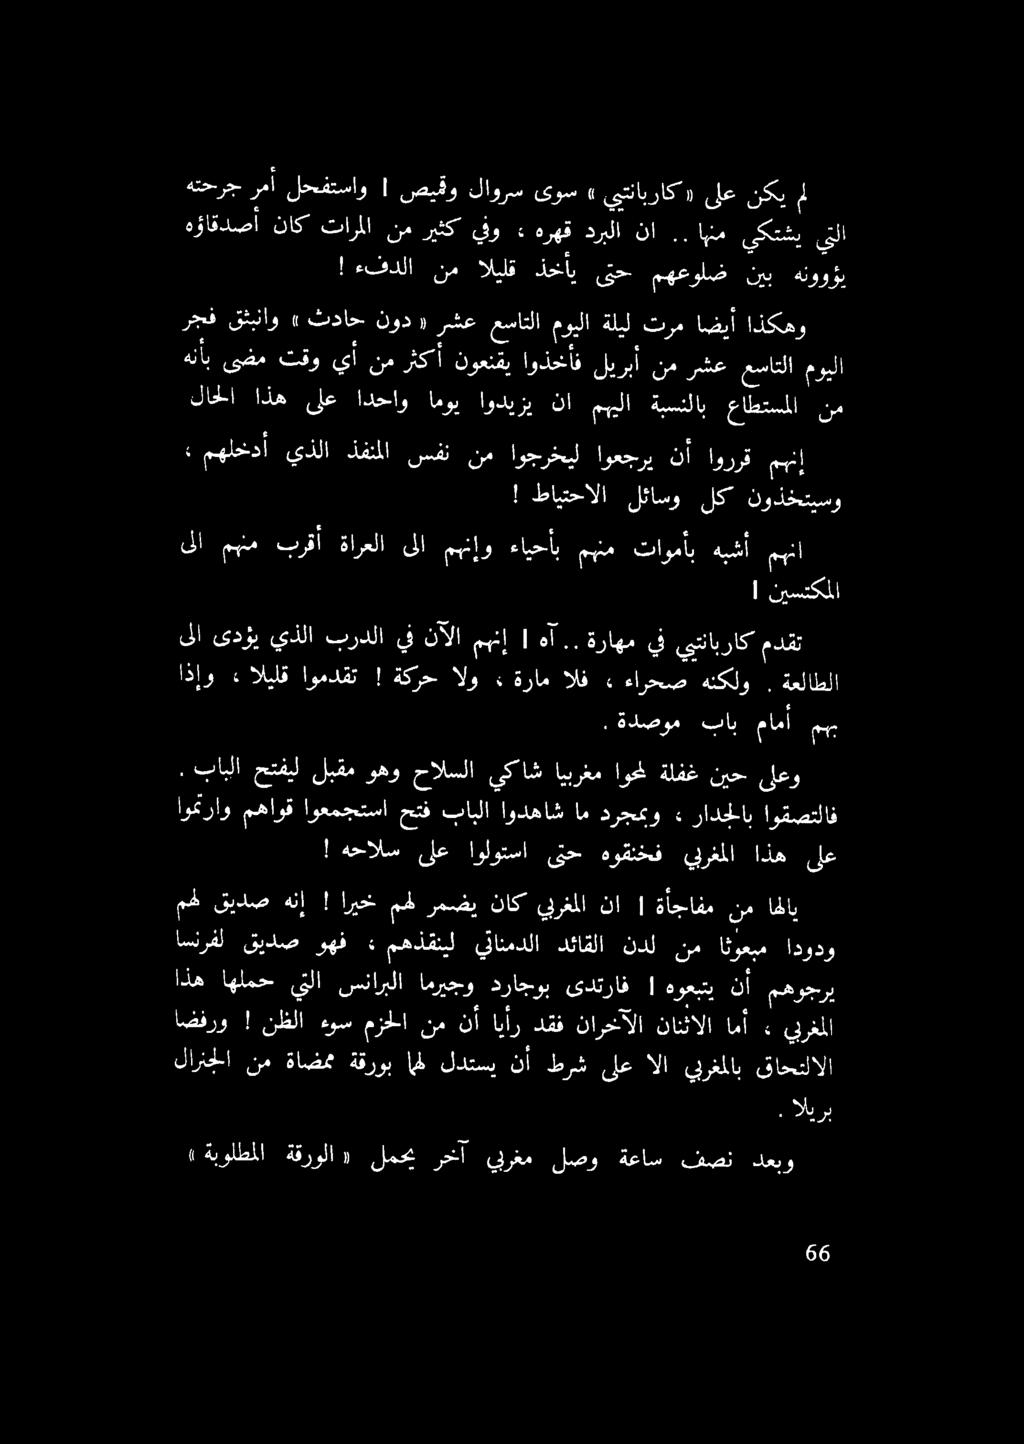 لم يكن على «كاربانتيي» سوى سروال وقميص ا واستفحل أمر جرحته
التي يشتكي منها .. ان البرد قهره ، وفي كثير من المرات كان أصدقاؤه
يؤوونه بين ضلوعهم حتى يأخذ قليلا من الدفء !
وهكذا أيضا مرت ليلة اليوم التاسع عشر «دون حادث» وانبثق فجر
اليوم التاسع عشر من أبريل فأخذوا يقنعون أكثر من أي وقت مضى بأنه
من المستطاع بالنسبة اليهم ان يزيدوا يوما واحدا على هذا الحال
إنهم قرروا أن يرجعوا ليخرجوا من نفس المنفذ الذي أدخلهم ،
وسيتخذون كل وسائل الاحتياط !
انهم أشبه بأموات منهم بأحياء وإنهم الى العراة أقرب منهم الى
المكتسين ا
تقدم كاربانتيي في مهارة .. آه ا إنهم الآن في الدرب الذي يؤدى الى
الطالعة . ولكنه صحراء ، فلا مارة ، ولا حركة ! تقدموا قليلا ، وإذا
بهم أمام باب موصدة .
وعلى حين غفلة لمحوا مغربيا شاكي السلاح وهو مقبل ليفتح الباب .
فالتصقوا بالجدار ، وبمجرد ما شاهدوا الباب فتح استجمعوا قواهم وارتموا
على هذا المغربي فخنقوه حتى استولوا على سلاحه !
يالها من مفاجأة ا ان المغربي كان يضمر لهم خيرا ! إنه صديق لهم
ودودا مبعوثا من لدن القائد الدمناتي لينقذهم ، فهو صديق لفرنسا
يرجوهم أن يتبعوه ا فارتدى بوجارد وجيرما البرانس التي حملها هذا
المغربي ، أما الاثنان الآخران فقد رأيا أن من الحزم سوء الظن ! ورفضا
الالتحاق بالمغربي الا على شرط أن يستدل لهما بورقة ممضاة من الجنرال
بريلا .
وبعد نصف ساعة وصل مغربي آخر يحمل «الورقة المطلوبة»
66